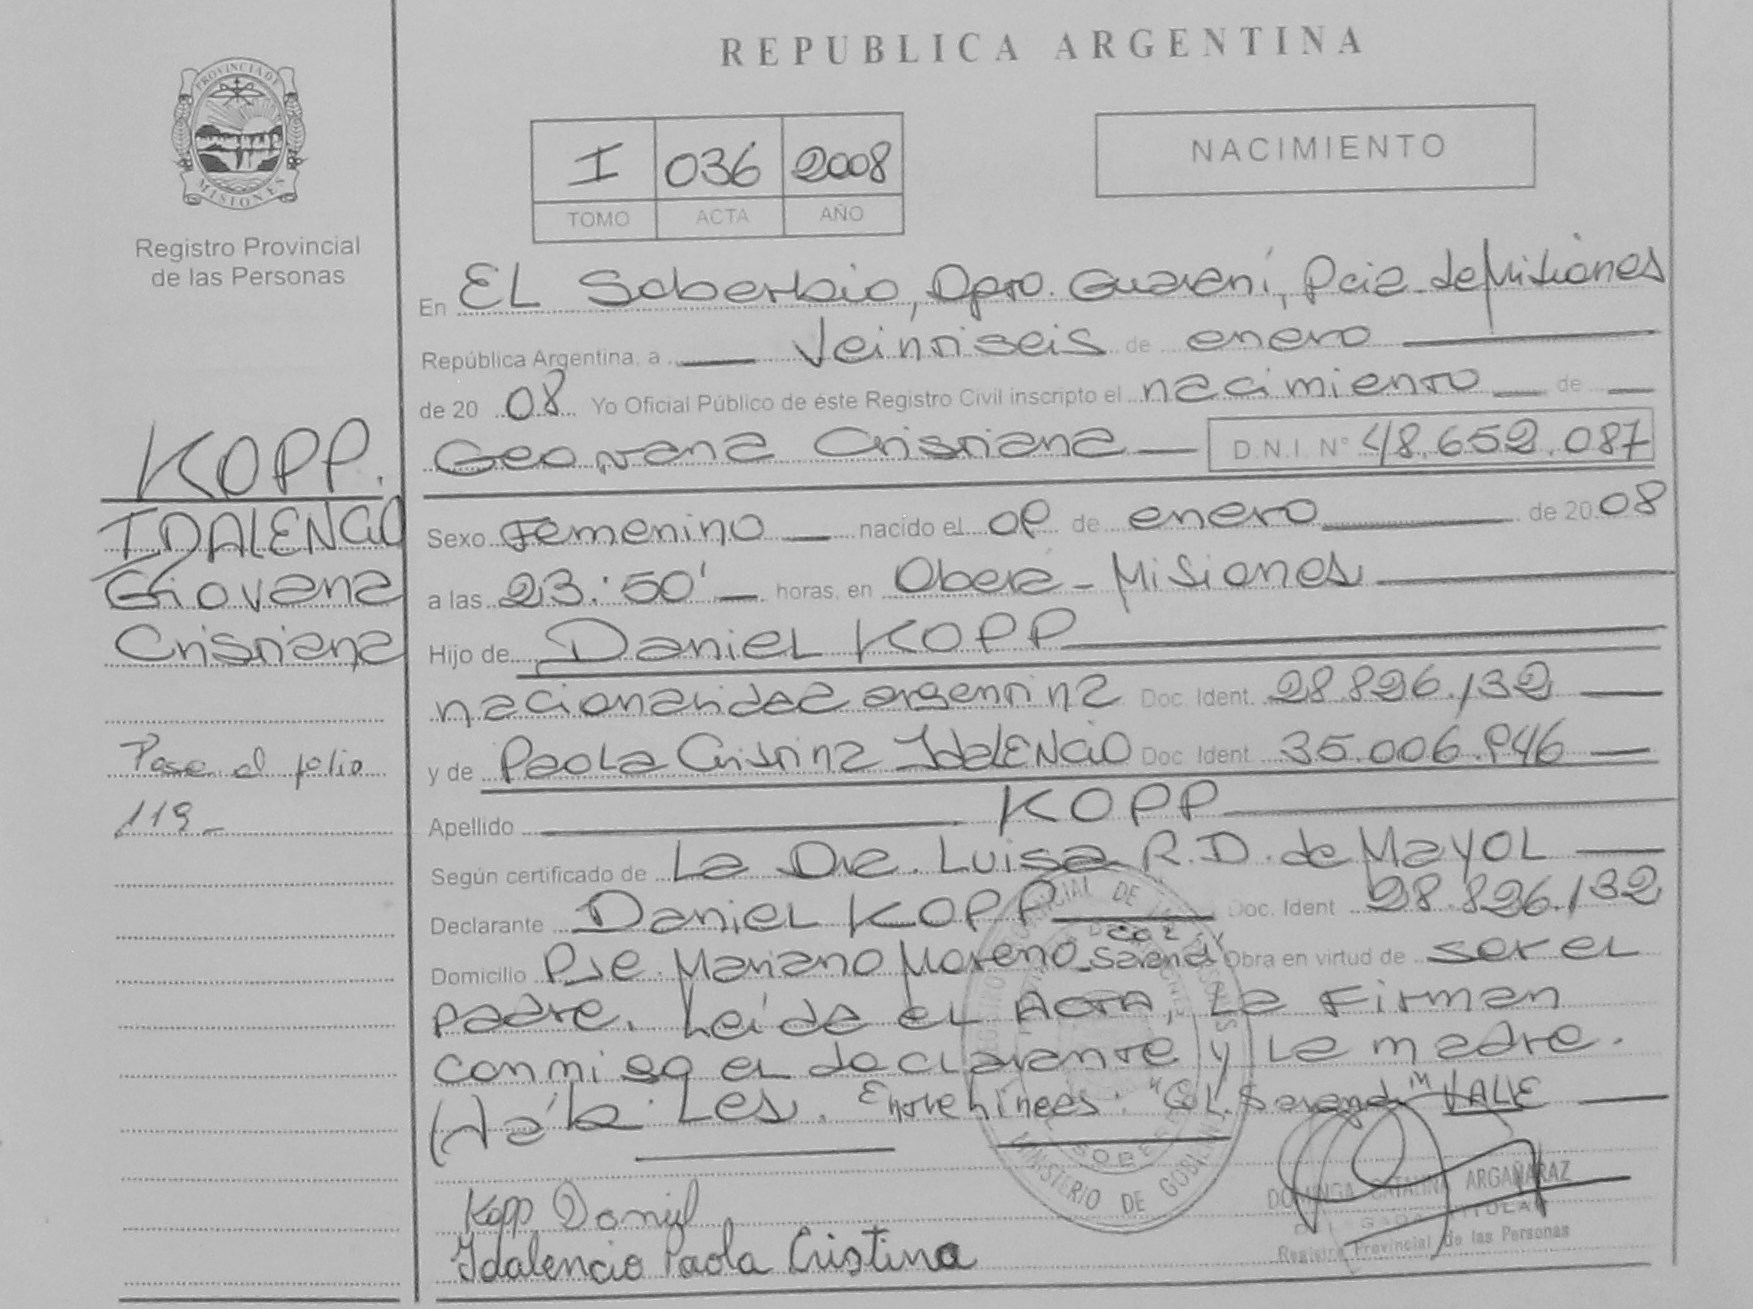 REPUBLICA ARGENTINA
PROVINCIA DE
MISIONES
Registro Provincial
de las Personas
I 036 2008
TOMO ACTA AÑO
NACIMIENTO
En EL Soberbio, Dpto. Guaraní, Pcia de Misiones
República Argentina, a Veintiseis de enero
de 20 08 Yo Oficial Público de éste Registro Civil inscripto el nacimiento de
Geovana Cristiana D.N.I. N° 48.652.087
Sexo Femenino nacido el 09 de enero de 20 08
a las 23:50' horas, en Oberá - Misiones
Hijo de Daniel KOPP
nacionalidad argentina Doc. Ident. 28.826.132
y de Paola Cristina Idalencio Doc. Ident. 35.006.946
Apellido KOPP
Según certificado de La Dra. Luisa R.D. de Mayol
Declarante Daniel KOPP Doc. Ident 28.826.132
Col.
Domicilio Pje. Mariano Moreno Sarandí Obra en virtud de ser el
padre. Leída el Acta, La Firman
conmigo el declarante y La madre.
Les. Entre líneas: "Col. Sarandí" VALE
Kopp Daniel
Idalencio Paola Cristina
KOPP.
IDALENCIO
Giovana
Cristiana
Pase al folio
119-
MINISTERIO DE GOBIERNO
DOMINGA CATALINA ARGAÑARAZ
DELEGADA TITULAR
Registro Provincial de las Personas